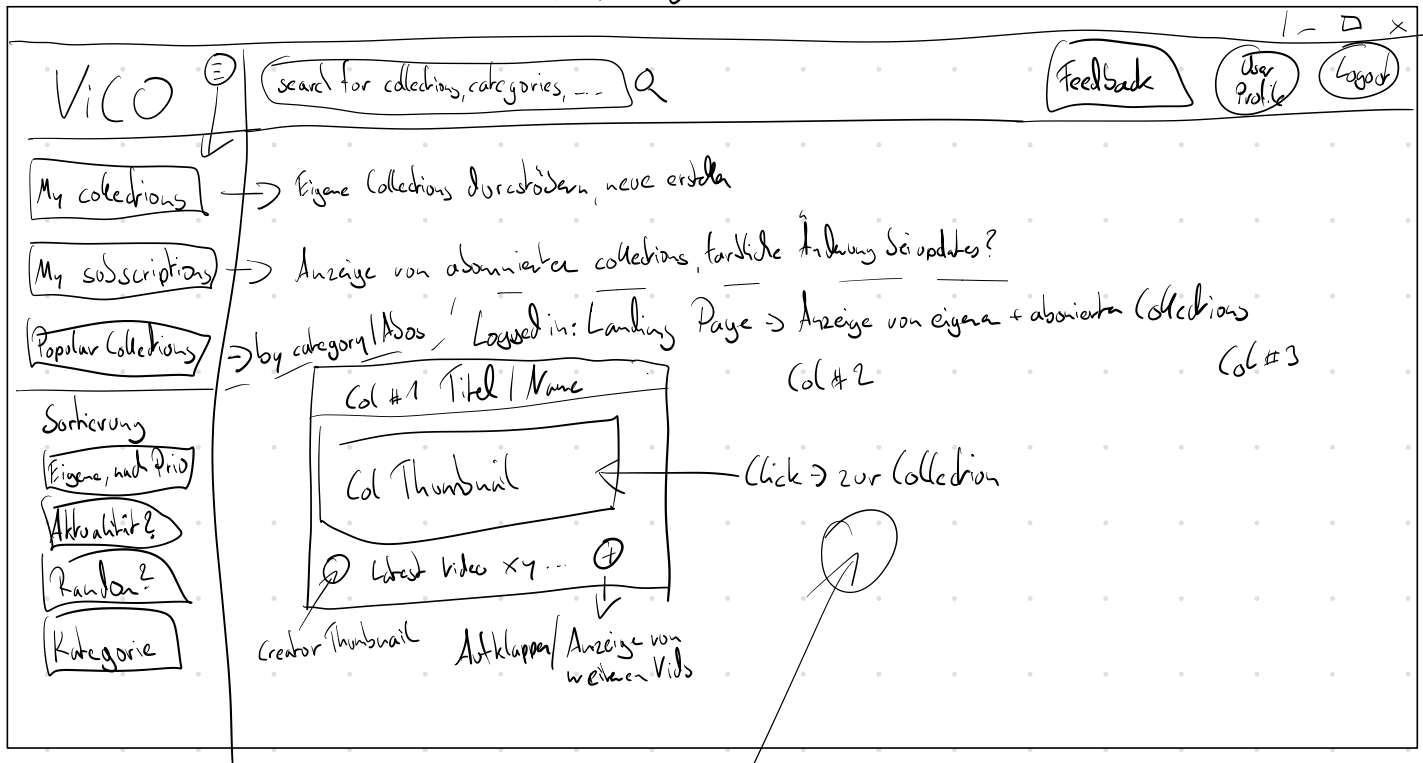 ViCO
search for collections, categories, ...
Feedback
User
Profile
Logout
My collections
Eigene Collections durchstöbern, neue erstellen
My subscriptions
Anzeige von abonnierten collections, farbliche Änderung bei updates?
Popular Collections
by category/Abos, Logged in: Landing Page => Anzeige von eigenen + abonierten Collections
Col #1 Titel / Name
Col #2
Col #3
Sortierung
Eigene, nach Prio
Aktualität?
Random?
Kategorie
Col Thumbnail
Click => zur Collection
Latest Video xy ...
Creator Thumbnail
Aufklappen/Anzeige von
weiteren Vids